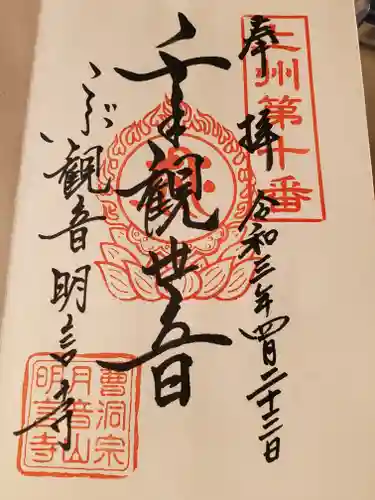 上州第十番
奉拝
令和三年四月二十三日
千手觀世音
こぶ觀音 明言寺
曹洞宗
月音山
明言寺